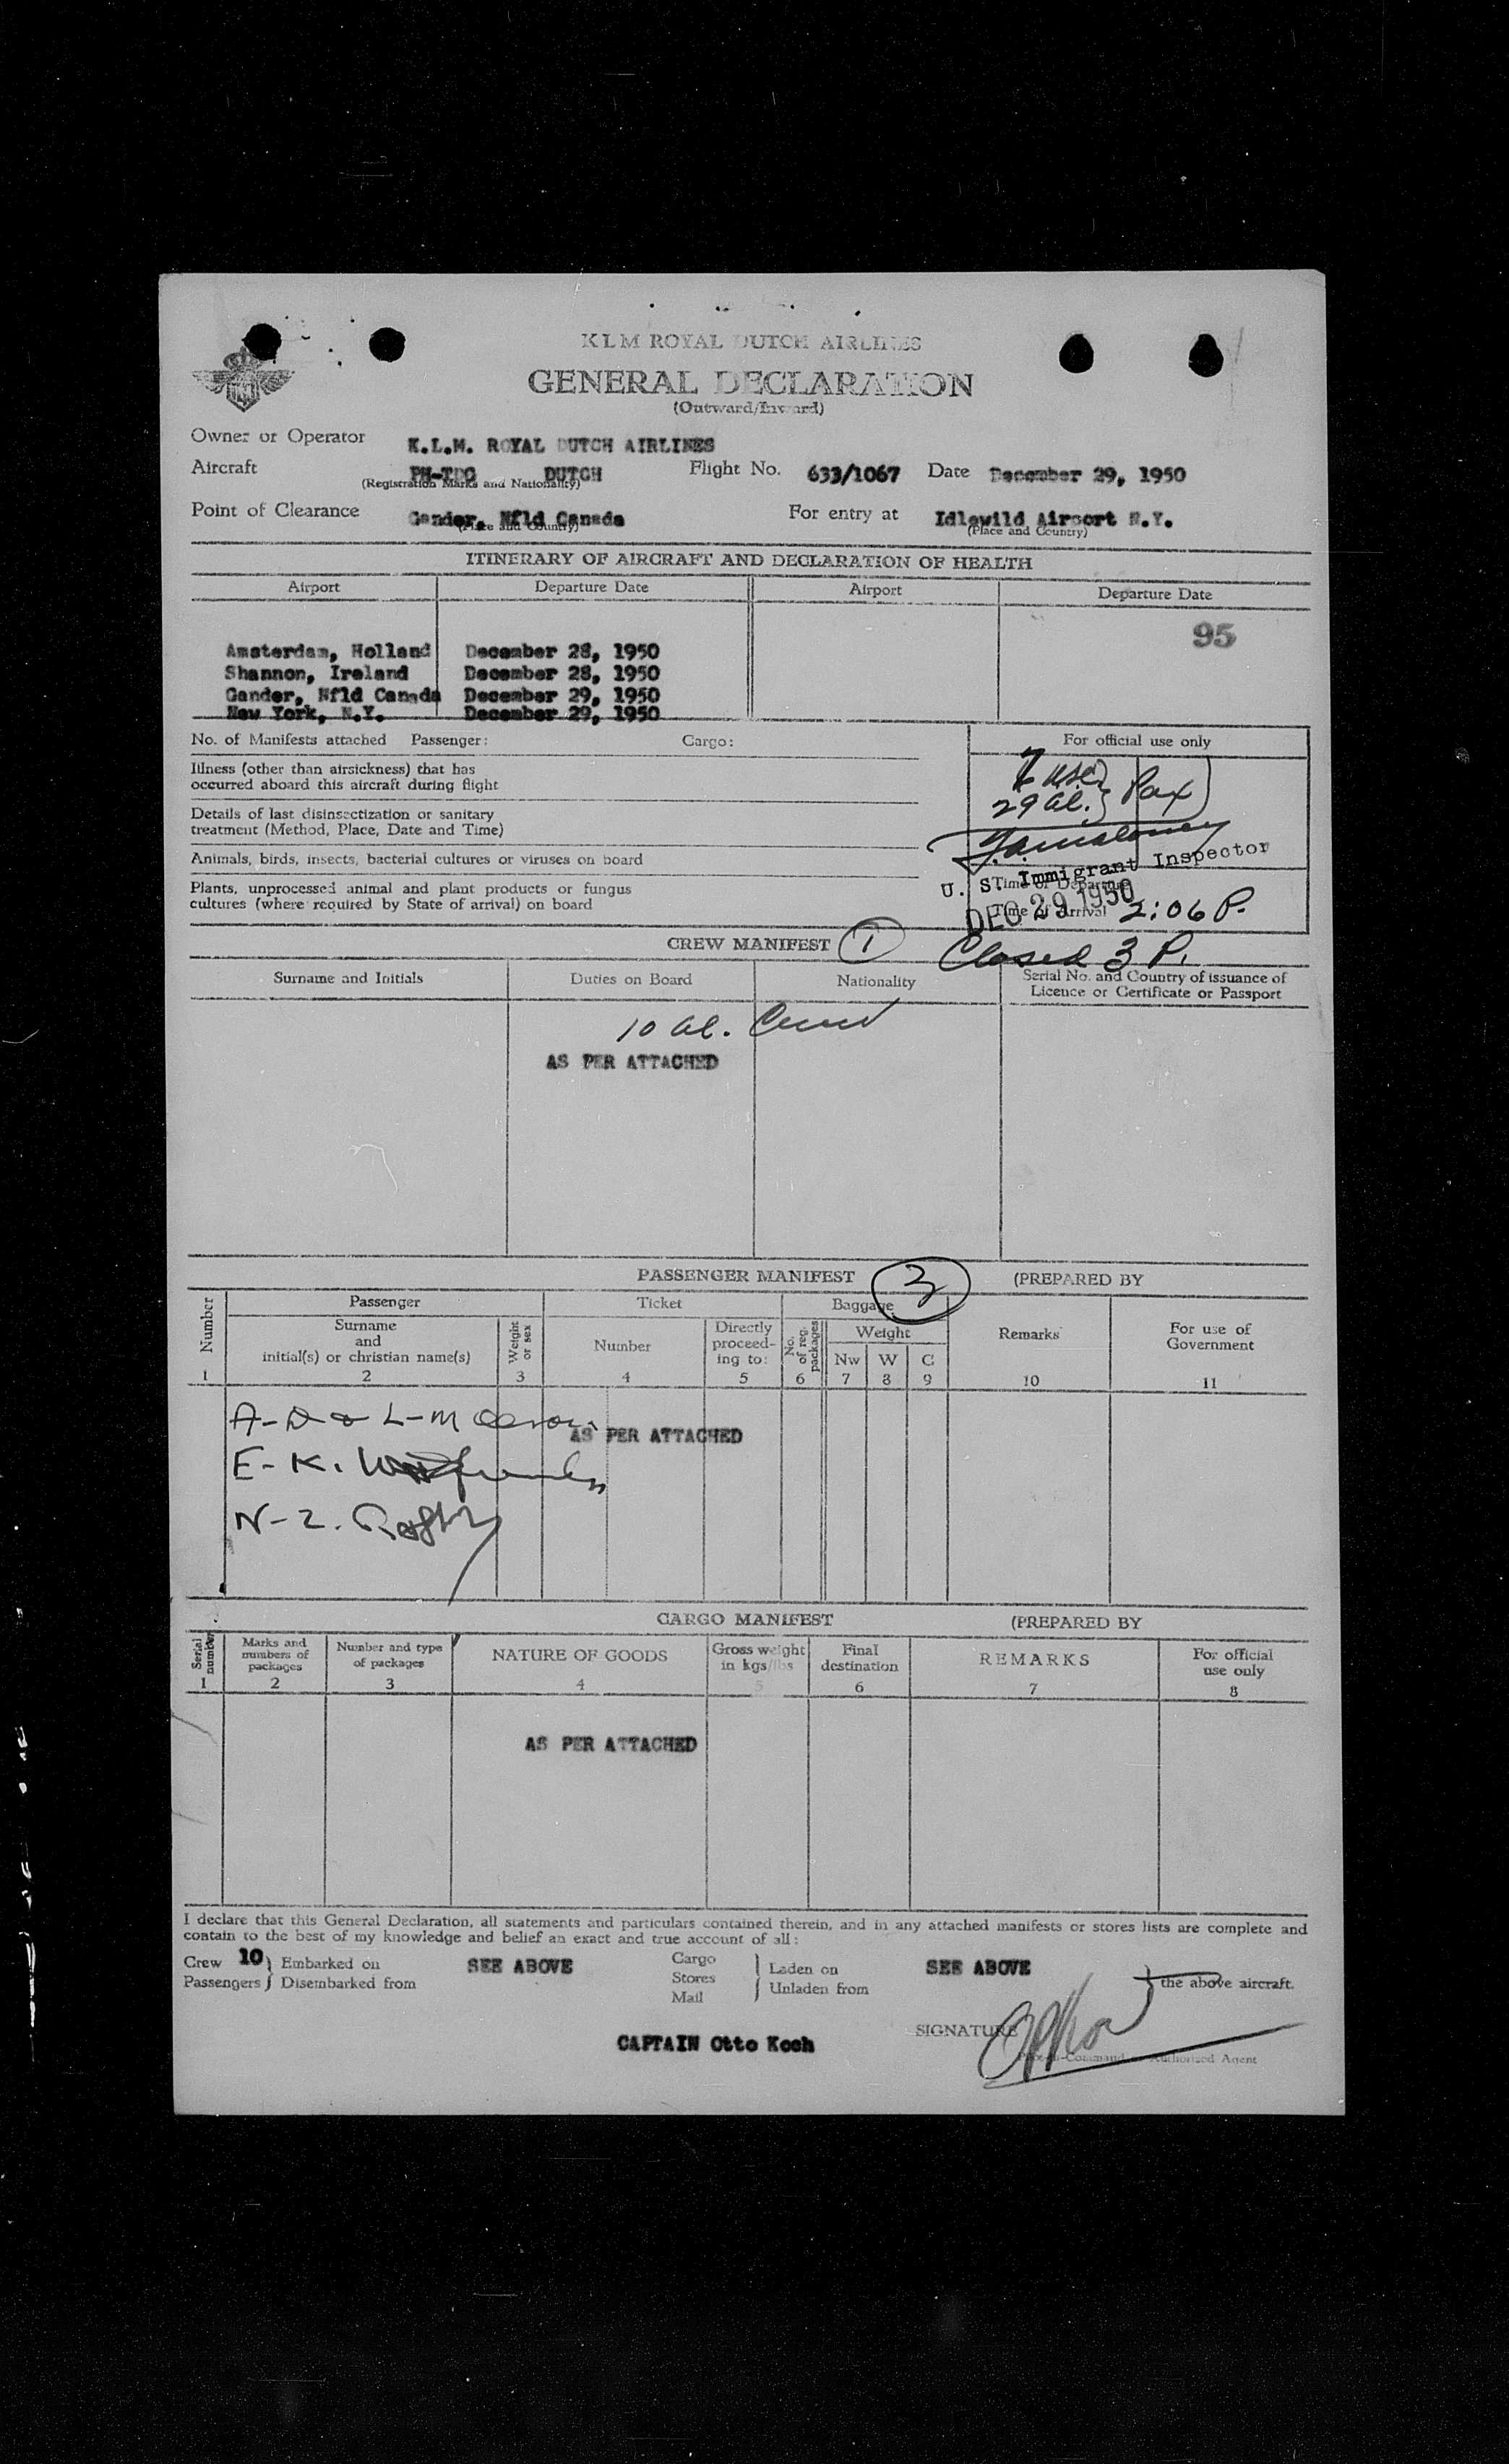 KLM ROYAL DUTCH AIRLINES
GENERAL DECLARATION
(Outward/Inward)
Owner or Operator K.L.M. ROYAL DUTCH AIRLINES
Aircraft DUTCH Flight No. 633/1067 Date December 29, 1950
(Registration Marks and Nationality)
Point of Clearance Gander, Nfld Canada For entry at Idlewild Airport N.Y.
(Place and Country) (Place and Country)
ITINERARY OF AIRCRAFT AND DECLARATION OF HEALTH
Airport Departure Date Airport Departure Date
95
Amsterdam, Holland December 28, 1950
Shannon, Ireland December 28, 1950
Gander, Nfld Canada December 29, 1950
New York, N.Y. December 29, 1950
No. of Manifests attached Passenger: Cargo: For official use only
Illness (other than airsickness) that has
occurred aboard this aircraft during flight
29 al. } Pax
Details of last disinsectization or sanitary
treatment (Method, Place, Date and Time)
Animals, birds, insects, bacterial cultures or viruses on board
U. S. Immigrant Inspector
Plants, unprocessed animal and plant products or fungus
cultures (where required by State of arrival) on board
Time of Departure
DEC 29 1950
Time of Arrival 2:06 P.
CREW MANIFEST 1 Closed 3 P.
Surname and Initials Duties on Board Nationality Serial No. and Country of issuance of
Licence or Certificate or Passport
10 al. Crew
AS PER ATTACHED
PASSENGER MANIFEST 3 (PREPARED BY
Number Passenger Ticket Baggage Remarks For use of Government
Surname and initial(s) or christian name(s) Weight or sex Number Directly proceeding to: No. of reg. packages Weight
Nw W C
1 2 3 4 5 6 7 8 9 10 11
A-D & L-M
AS PER ATTACHED
E-K.
N-Z.
CARGO MANIFEST (PREPARED BY
Serial number Marks and numbers of packages Number and type of packages NATURE OF GOODS Gross weight in kgs/lbs Final destination REMARKS For official use only
1 2 3 4 5 6 7 8
AS PER ATTACHED
I declare that this General Declaration, all statements and particulars contained therein, and in any attached manifests or stores lists are complete and
contain to the best of my knowledge and belief an exact and true account of all:
Crew 10 } Embarked on SEE ABOVE Cargo } Laden on SEE ABOVE
Passengers } Disembarked from Stores } Unladen from } the above aircraft.
Mail
SIGNATURE
CAPTAIN Otto Koch
Pilot-in-Command or Authorised Agent